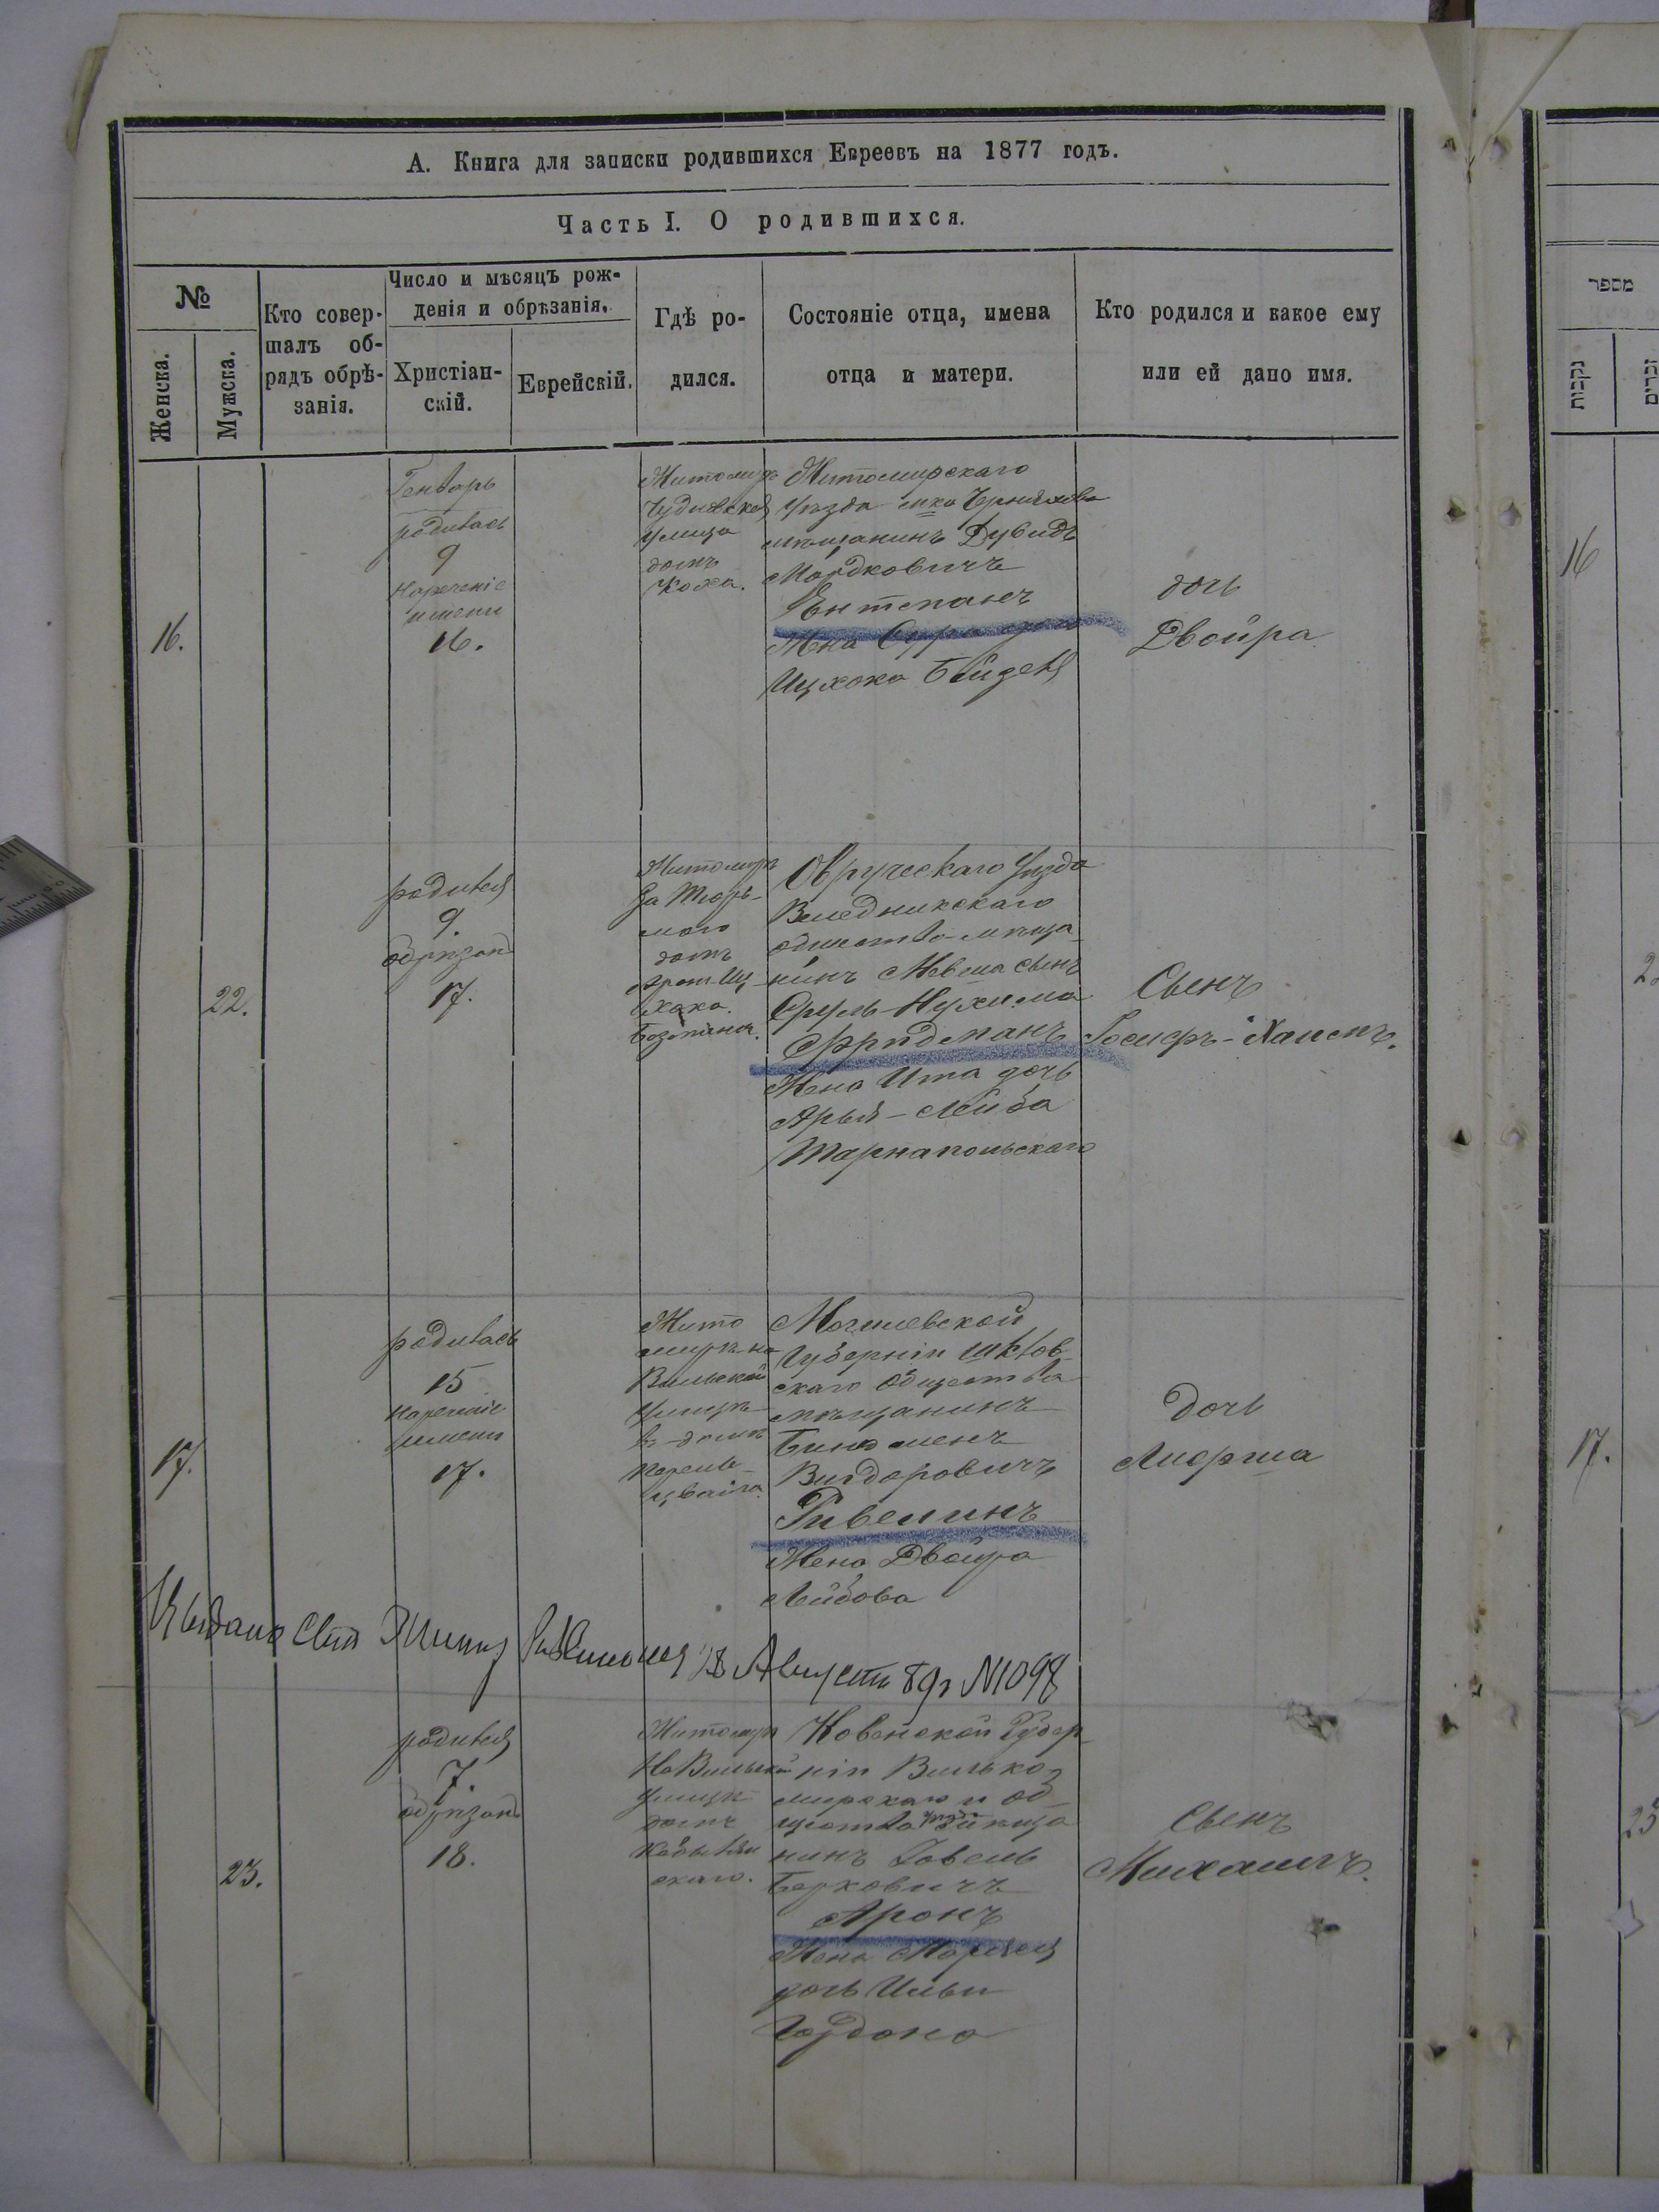 А. Книга для записки родившихся Евреевъ на 1877 годъ.
Часть I. О родившихся.
№
Женска.
Мужска.
Кто совер-
шалъ об-
рядъ обрѣ-
занія.
Число и мѣсяцъ рож-
денія и обрѣзанія.
Христіан-
скій.
Еврейскій.
Гдѣ ро-
дился.
Состояніе отца, имена
отца и матери.
Кто родился и какое ему
или ей дано имя.
16.
Генварь
родилась
9
Нареченіе
имени
16.
Житомиръ
Чудновской
улица
домъ
Коха.
Житомирскаго
уѣзда мка Черняхова
мѣщанинъ Дувидъ
Мордковичъ
Жена Сура дочь
Ицхока
дочь
Двойра
22.
родился
9.
обрѣзанъ
17.
Житомиръ
за Тюрь-
мою
домъ
Овручскаго уѣзда
Веледникскаго
общества мѣща-
нинъ Мовша сынъ
Сруль-Нухима
Фридманъ
Жена Ита дочь
Арья-Лейба
Тарнапольскаго
Сынъ
Іосифъ-Хаимъ.
17.
родилась
15
Нареченіе
имени
17.
Жито
миръ на
Вильской
улицѣ
въ домѣ
Могилевской
Губерніи Шклов-
скаго общества
мѣщанинъ
Вигдоровичъ
Ривелинъ
Жена Двойра
Лейбова
Дочь
Выдано
18 Августа 89г N1098
23.
родился
7.
обрѣзанъ
18.
Житомиръ
На Вильской
улицѣ
домъ
скаго.
Ковенской Губер
ніи Вилько
мирскаго об
щества уѣзда мѣща
нинъ Іовель
Берковичъ
Аронъ
Жена
дочь Ильи
Гордона
Сынъ
Михаилъ.
מספר
נקבות
זכרים
16
17.
23